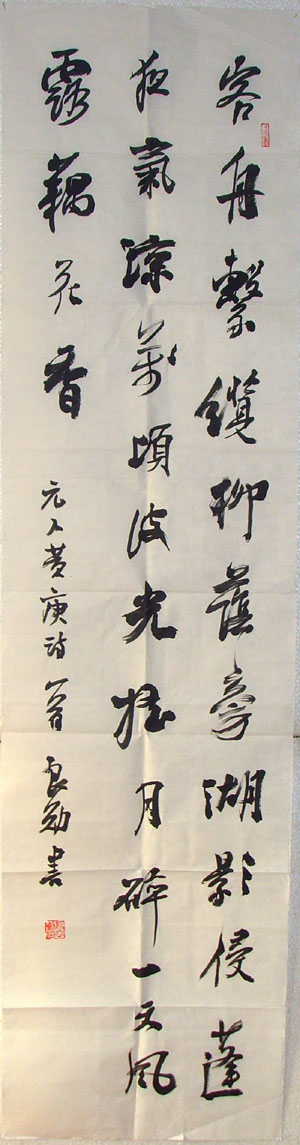 客舟繫纜柳蔭旁湖影侵蓬
夜氣涼萬頃波光搖月碎一天風
露藕花香 元人黄庚詩一首 良書